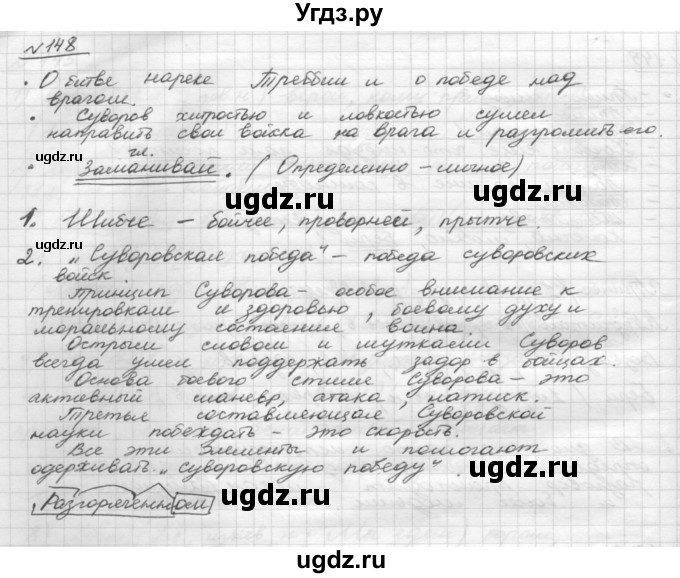 Угдз.ру
№148
• О битве нареке Треббии и о победе над
врагом.
• Суворов хитростью и ловкостью сумел
направить свои войска на врага и разгромить его.
гл.
• Заманивай. (Определенно-личное)
1. Шибче – бойчее, проворней, прытче.
2. „Суворовская победа" – победа суворовских
войск.
Принцип Суворова – особое внимание к
тренировкам и здоровью, боевому духу и
моральному состоянию воина.
Острым словом и шутками Суворов
всегда умел поддержать задор в бойцах.
Основа боевого стиля Суворова – это
активный маневр, атака, натиск.
Третья составляющая Суворовской
науки побеждать – это скорость.
Все эти элементы и помогают
одерживать „суворовскую победу".
Разгоряченном
ugdz.ru
ugdz.ru
ugdz.ru
ugdz.ru
ugdz.ru
ugdz.ru
ugdz.ru
ugdz.ru
ugdz.ru
ugdz.ru
ugdz.ru
ugdz.ru
ugdz.ru